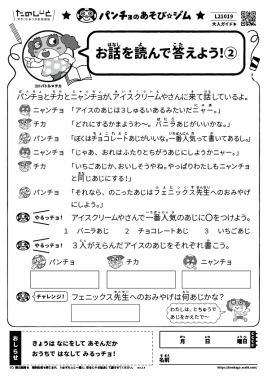 たのしーと
パンチョのあそび☆ジム
L21019
大人ガイド
お話を読んで答えよう!②
パンチョとチカとニャンチョが、アイスクリームやさんに来て話しているよ。
ニャンチョ 「アイスのあじは3しゅるいあるみたいだニャー。」
チカ 「どれにするかまようわ〜。バニラあじがいいかな。」
パンチョ 「ぼくはチョコレートあじがいいな。一番人気って書いてあるし。」
ニャンチョ 「じゃあ、おれはふたりとちがうあじにしようかニャー。」
チカ 「いちごあじか、おいしそうやね。やっぱりわたしもニャンチョ
と同じあじにする!」
パンチョ 「それなら、のこったあじはフェニックス先生へのおみやげ
にしよう。」
やるっチョ! アイスクリームやさんで一番人気のあじに〇をつけよう。
1 バニラあじ 2 チョコレートあじ 3 いちごあじ
やるっチョ! 3人がえらんだアイスのあじをそれぞれ書こう。
パンチョ チカ ニャンチョ
チャレンジ! フェニックス先生へのおみやげは何あじかな?
わたしは、とちゅうで
あじをかえたで〜
おしらせ
きょうは なにをして あそんだか
おうちで はなして みるっチョ!
月 日 曜日
名前